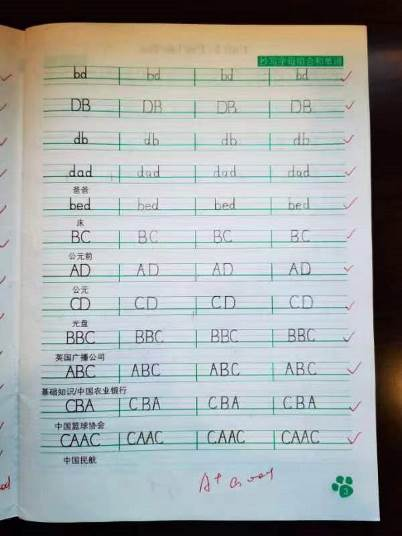 抄写字母组合和单词
bd bd bd bd
DB DB DB DB
db db db db
dad dad dad dad
爸爸
bed bed bed bed
床
BC BC BC BC
公元前
AD AD AD AD
公元
CD CD CD CD
光盘
BBC BBC BBC BBC
英国广播公司
ABC ABC ABC ABC
基础知识/中国农业银行
CBA CBA CBA CBA
中国篮球协会
CAAC CAAC CAAC CAAC
中国民航
A+ Good
3